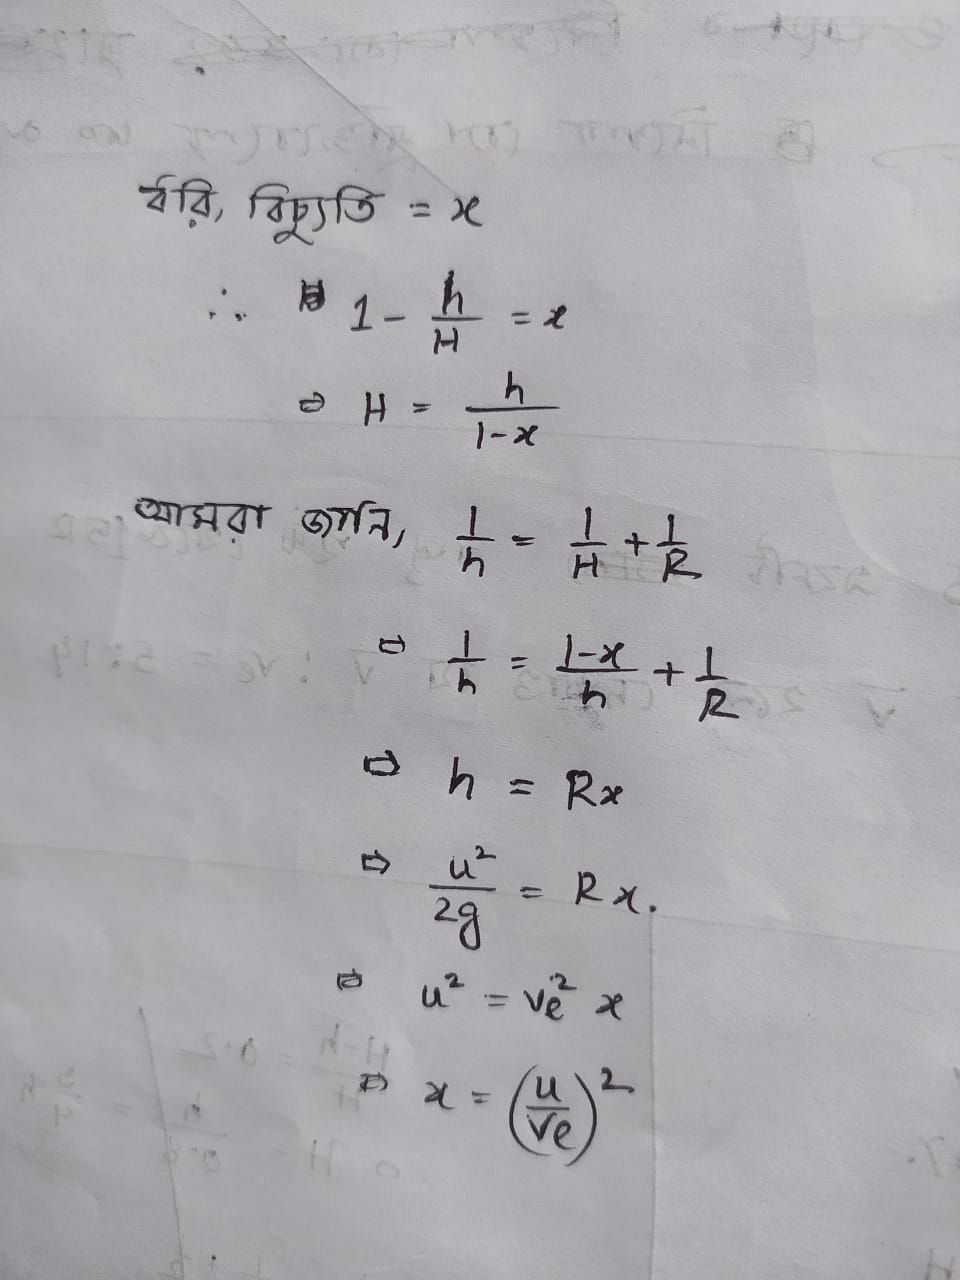 ধরি, বিচ্যুতি = x
∴ 1 - h/H = x
⇒ H = h/(1-x)
আমরা জানি, 1/h = 1/H + 1/R
⇒ 1/h = (1-x)/h + 1/R
⇒ h = Rx
⇒ u²/2g = Rx.
⇒ u² = ve² x
⇒ x = (u/ve)²